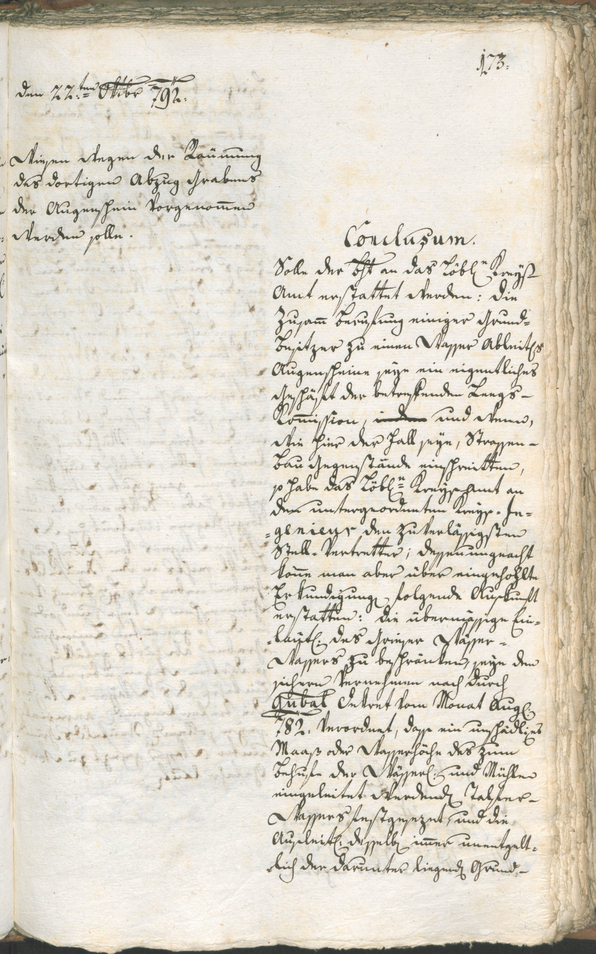 173.
den 22.ten Oktbr 792.
Wiesen wegen der Räumung
des dortigen Abzug Grabens
der Augenschein vorgenommen
werden solle.
Conclusum.
Solle der Bht an das Löbl. Kreys-
Amt erstattet werden: die
Zusam̅ berufung einiger Grund-
besitzer zu einen Wasser Ableitgs
Augenscheine seye ein eigentliches
Geschäft der betreffenden Leegs-
Com̅ission, und wenn,
wie hier der Fall seye, Strassen-
bau Gegenstände einschreitten,
so habe das Löbl. Kreysamt an
dem untergeordneten Kreys-In-
=genieur den zuverlässigsten
Stell-Vertretter; dessenungeacht
könne man aber über eingehohlte
Erkundigung folgende Auskunft
erstatten: die übermässige Ein-
des Wasser-
Wassers zu beschränken, seye dem
sichern Vernehmen nach durch
Gubal Dekret vom Monat Aug.
782. verordnet, dass ein unschädliches
Maass der Wasserhöhe des zum
Behufe der Wässer: und Mühlen
eingeleitet werdenden Talfer-
Wassers festgesezet, und die
Ausleit: desselb immer unentgelt-
lich der darunter liegend Grund-